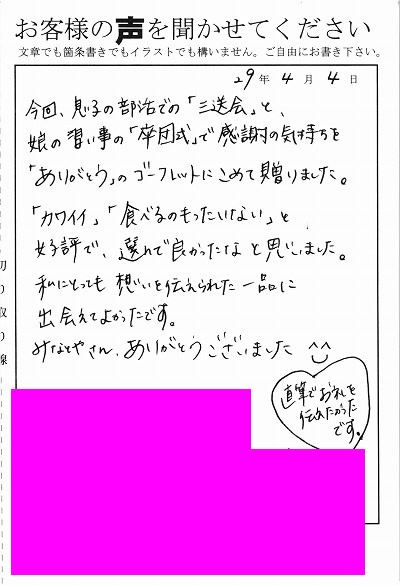 お客様の声を聞かせてください
文章でも箇条書きでもイラストでも構いません。ご自由にお書き下さい。
29年4月4日
今回、息子の部活での「三送会」と、
娘の習い事の「卒団式」で感謝の気持ちを
「ありがとう」のゴーフレットにこめて贈りました。
「カワイイ」「食べるのもったいない」と
好評で、選んで良かったなと思いました。
私にとっても想いを伝えられた一品に
出会えてよかったです。
みなとやさん、ありがとうございました
直筆でお礼を
伝えたかった
です。
切り取り線